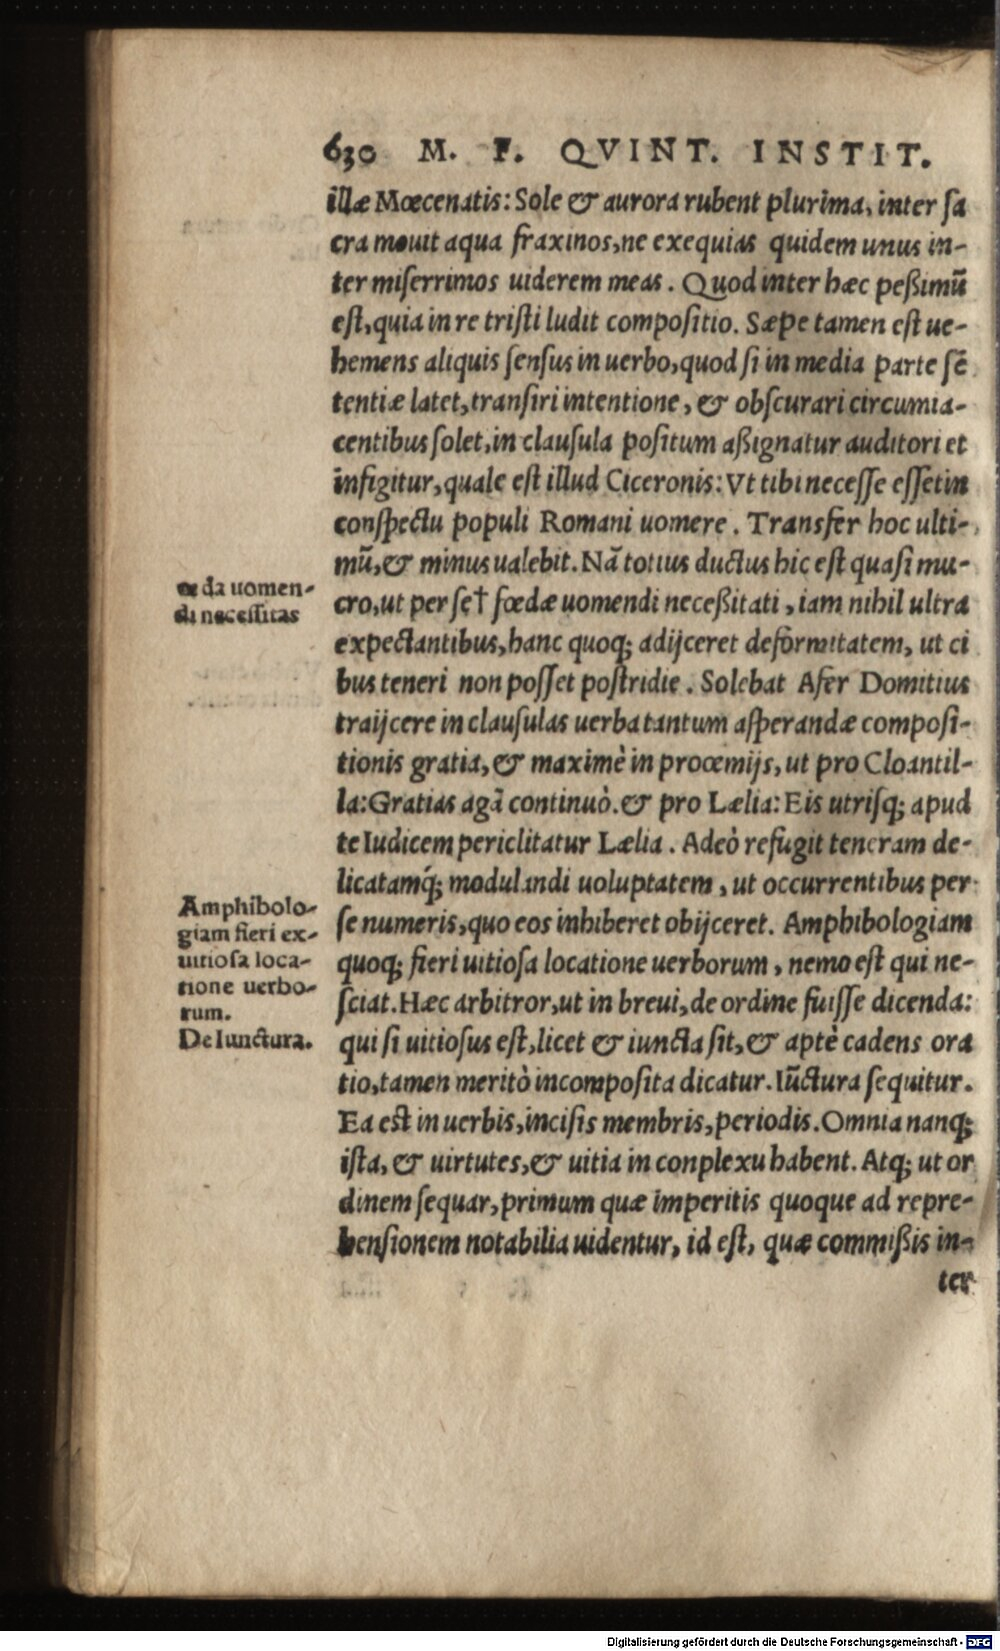 630 M. F. QVINT. INSTIT.
illæ Mœcenatis: Sole & aurora rubent plurima, inter sa
cra mouit aqua fraxinos, ne exequias quidem unus in-
ter miserrimos uiderem meas. Quod inter hæc peßimũ
est, quia in re tristi ludit compositio. Sæpe tamen est ue-
hemens aliquis sensus in uerbo, quod si in media parte sẽ
tentiæ latet, transiri intentione, & obscurari circumia-
centibus solet, in clausula positum aßignatur auditori et
infigitur, quale est illud Ciceronis: Vt tibi necesse esset in
conspectu populi Romani uomere. Transfer hoc ulti-
mũ, & minus ualebit. Nã totius ductus hic est quasi mu-
cro, ut per se† fœdæ uomendi neceßitati, iam nihil ultra
expectantibus, hanc quoq; adijceret deformitatem, ut ci
bus teneri non posset postridie. Solebat Afer Domitius
traijcere in clausulas uerba tantum asperandæ composi-
tionis gratia, & maximè in proœmijs, ut pro Cloantil-
la: Gratias agã continuò. & pro Lælia: Eis utrisq; apud
te Iudicem periclitatur Lælia. Adeò refugit teneram de-
licatamq́; modulandi uoluptatem, ut occurrentibus per
se numeris, quo eos inhiberet obijceret. Amphibologiam
quoq; fieri uitiosa locatione uerborum, nemo est qui ne-
sciat. Hæc arbitror, ut in breui, de ordine fuisse dicenda:
qui si uitiosus est, licet & iuncta sit, & aptè cadens ora
tio, tamen meritò incomposita dicatur. Iũctura sequitur.
Ea est in uerbis, incisis membris, periodis. Omnia nanq;
ista, & uirtutes, & uitia in conplexu habent. Atq; ut or
dinem sequar, primum quæ imperitis quoque ad repre-
hensionem notabilia uidentur, id est, quæ commißis in-
ter
œda uomen-
di necessitas
Amphibolo-
giam fieri ex
uitiosa loca-
tione uerbo-
rum.
De Iunctura.
Digitalisierung gefördert durch die Deutsche Forschungsgemeinschaft - DFG